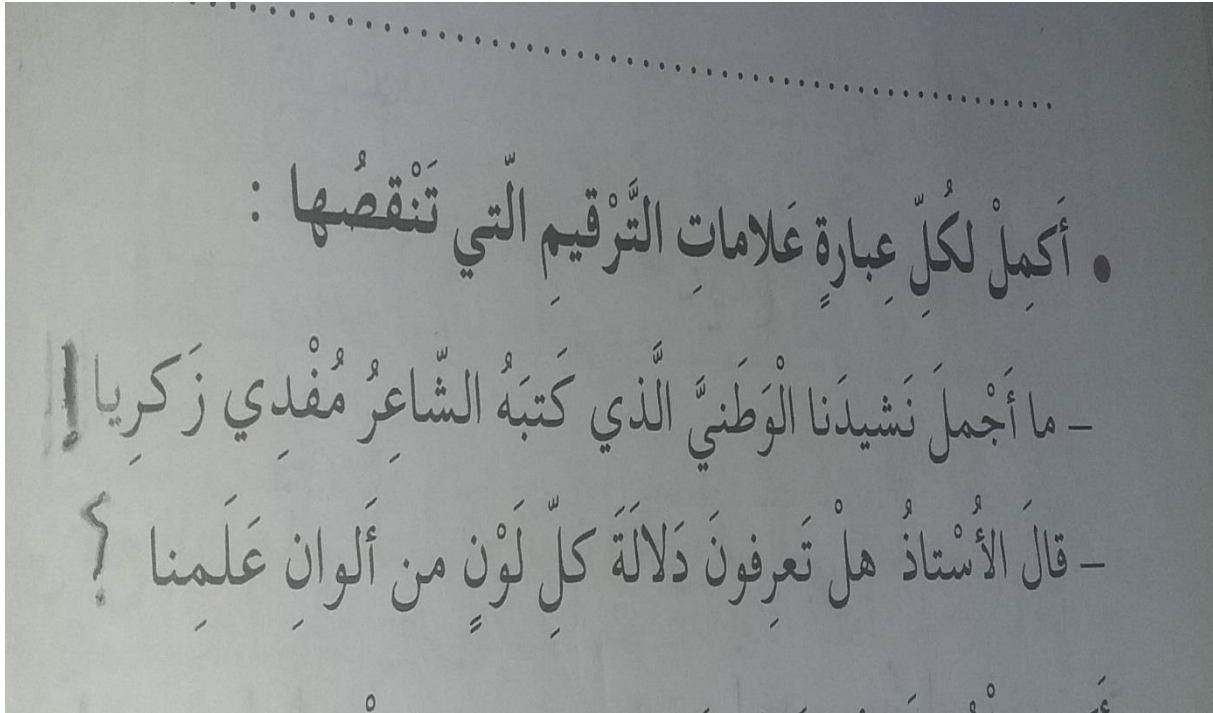 • أَكمِلْ لكُلِّ عِبارةٍ عَلاماتِ التَّرْقيمِ الّتي تَنْقصُها :
– ما أَجْملَ نَشيدَنا الْوَطَنيَّ الَّذي كَتبَهُ الشّاعِرُ مُفْدِي زَكرِيا !
– قالَ الأُسْتاذُ هلْ تَعرِفونَ دَلالَةَ كلِّ لَوْنٍ من أَلوانِ عَلَمِنا ؟